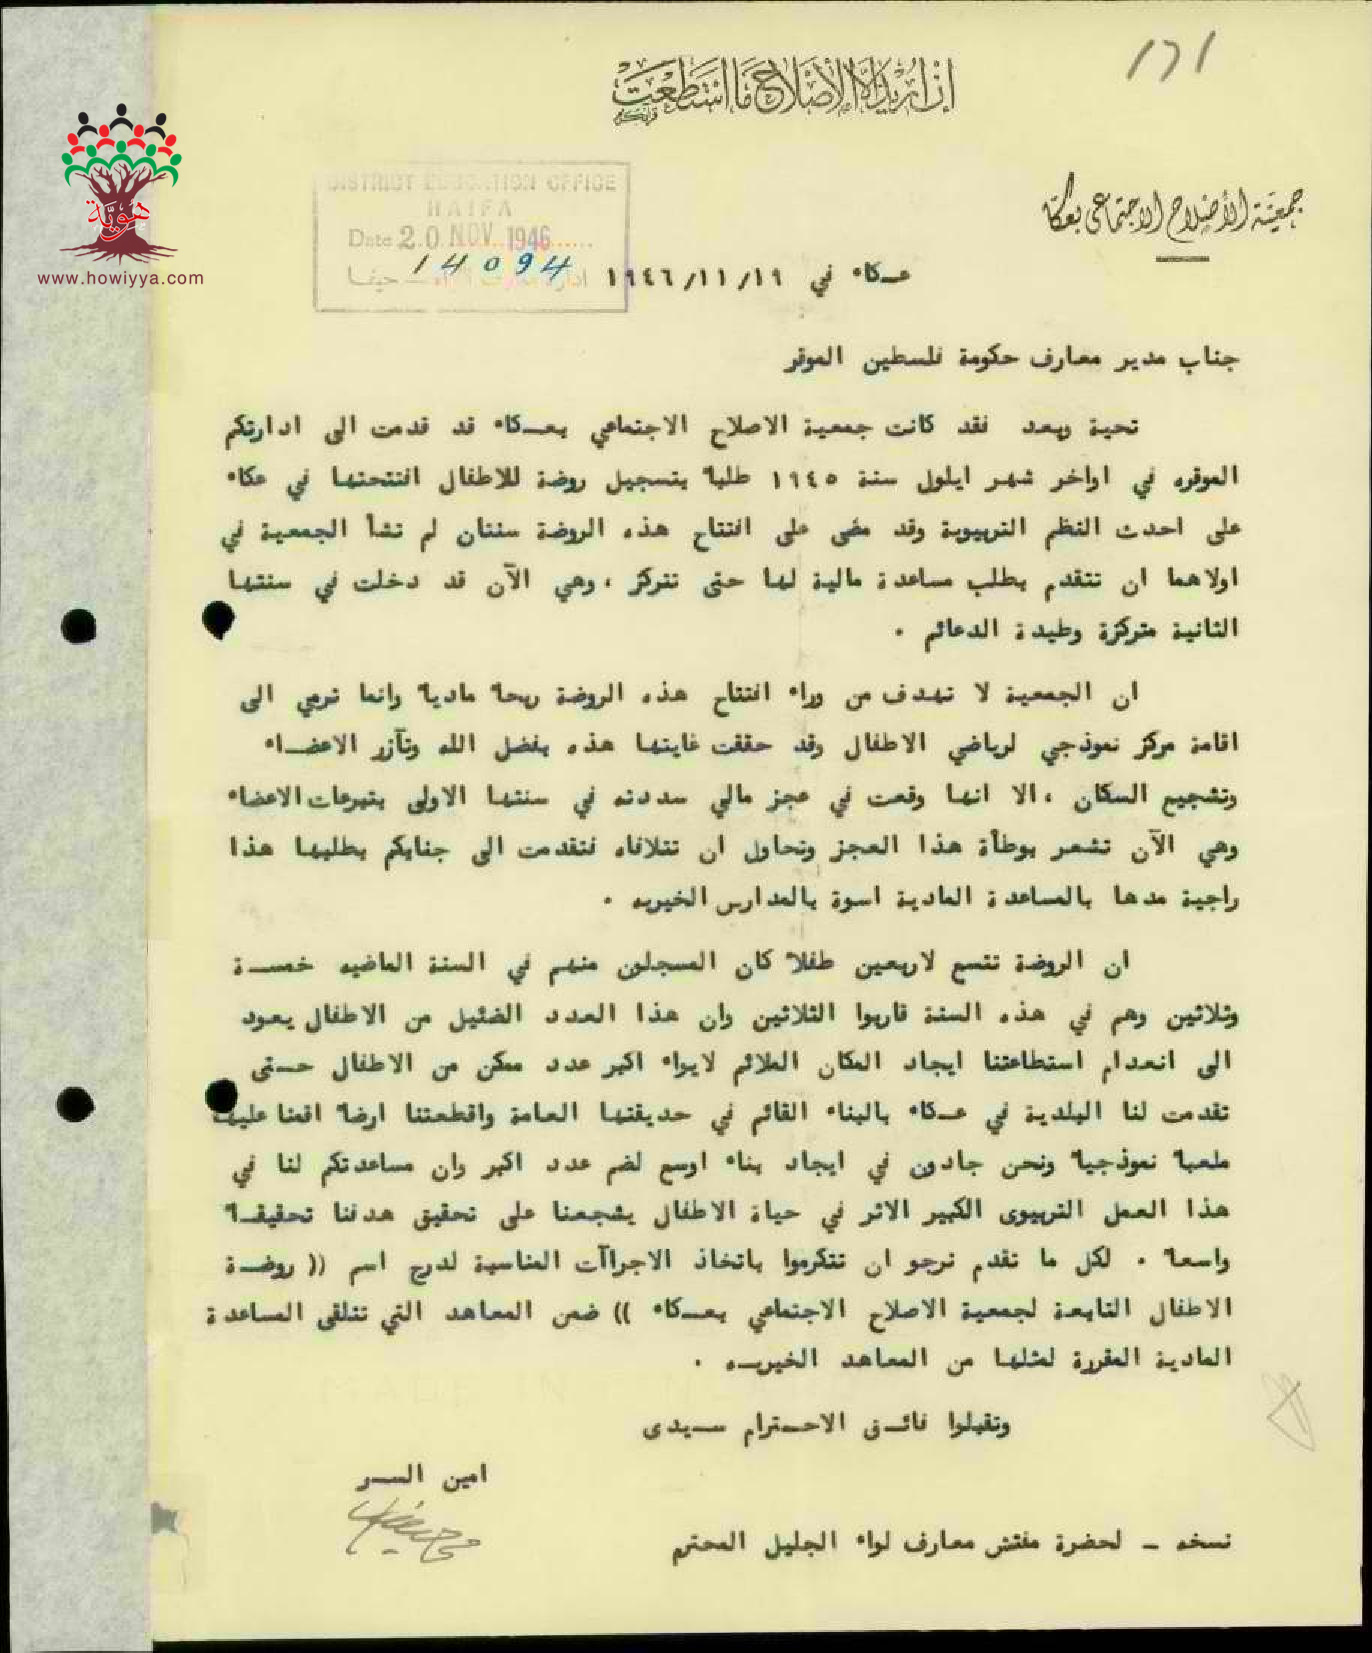 171
إن أريد إلا الإصلاح ما استطعت
قرآن كريم
جمعية الأصلاح الاجتماعي بعكا
هوية
www.howiyya.com
DISTRICT EDUCATION OFFICE
HAIFA
Date 20 NOV 1946
14094
حيفا
عـكاء في ١٩/١١/١٩٤٦
جناب مدير معارف حكومة فلسطين الموقر
تحية وبعد فقد كانت جمعية الاصلاح الاجتماعي بعـكاء قد قدمت الى ادارتكم
الموقره في اواخر شهر ايلول سنة ١٩٤٥ طلبا بتسجيل روضة للاطفال افتتحتها في عكاء
على احدث النظم التربيوية وقد مضى على افتتاح هذه الروضة سنتان لم تشأ الجمعية في
اولاهما ان تتقدم بطلب مساعدة مالية لها حتى تتركز ، وهي الآن قد دخلت في سنتها
الثانية متركزة وطيدة الدعائم .
ان الجمعية لا تهدف من وراء افتتاح هذه الروضة ربحا ماديا وانما ترمي الى
اقامة مركز نموذجي لرياضي الاطفال وقد حققت غايتها هذه بفضل الله وتآزر الاعضـاء
وتشجيع السكان ، الا انها وقعت في عجز مالي سددته في سنتها الاولى بتبرعات الاعضاء
وهي الآن تشعر بوطأة هذا العجز وتحاول ان تتلافاه فتقدمت الى جنابكم بطلبها هذا
راجية مدها بالمساعدة المادية اسوة بالمدارس الخيريه .
ان الروضة تتسع لاربعين طفلا كان المسجلون منهم في السنة الماضيه خمســة
وثلاثين وهم في هذه السنة قاربوا الثلاثين وان هذا العدد الضئيل من الاطفال يعود
الى انعدام استطاعتنا ايجاد المكان الملائم لايواء اكبر عدد ممكن من الاطفال حـتى
تقدمت لنا البلدية في عـكاء بالبناء القائم في حديقتها العامة واقطعتنا ارضا اقمنا عليها
ملعبا نموذجيا ونحن جادون في ايجاد بناء اوسع لضم عدد اكبر وان مساعدتكم لنا في
هذا العمل التربيوى الكبير الاثر في حياة الاطفال يشجعنا على تحقيق هدفنا تحقيقـا
واسعا . لكل ما تقدم نرجو ان تتكرموا باتخاذ الاجراآت المناسبة لدرج اسم (( روضـة
الاطفال التابعة لجمعية الاصلاح الاجتماعي بعـكاء )) ضمن المعاهد التي تتلقى المساعدة
المادية المقررة لمثلها من المعاهد الخيريـه .
وتقبلوا فائـق الاحـترام سـيدى
امين السـر
نسخه ـ لحضرة مفتش معارف لواء الجليل المحترم